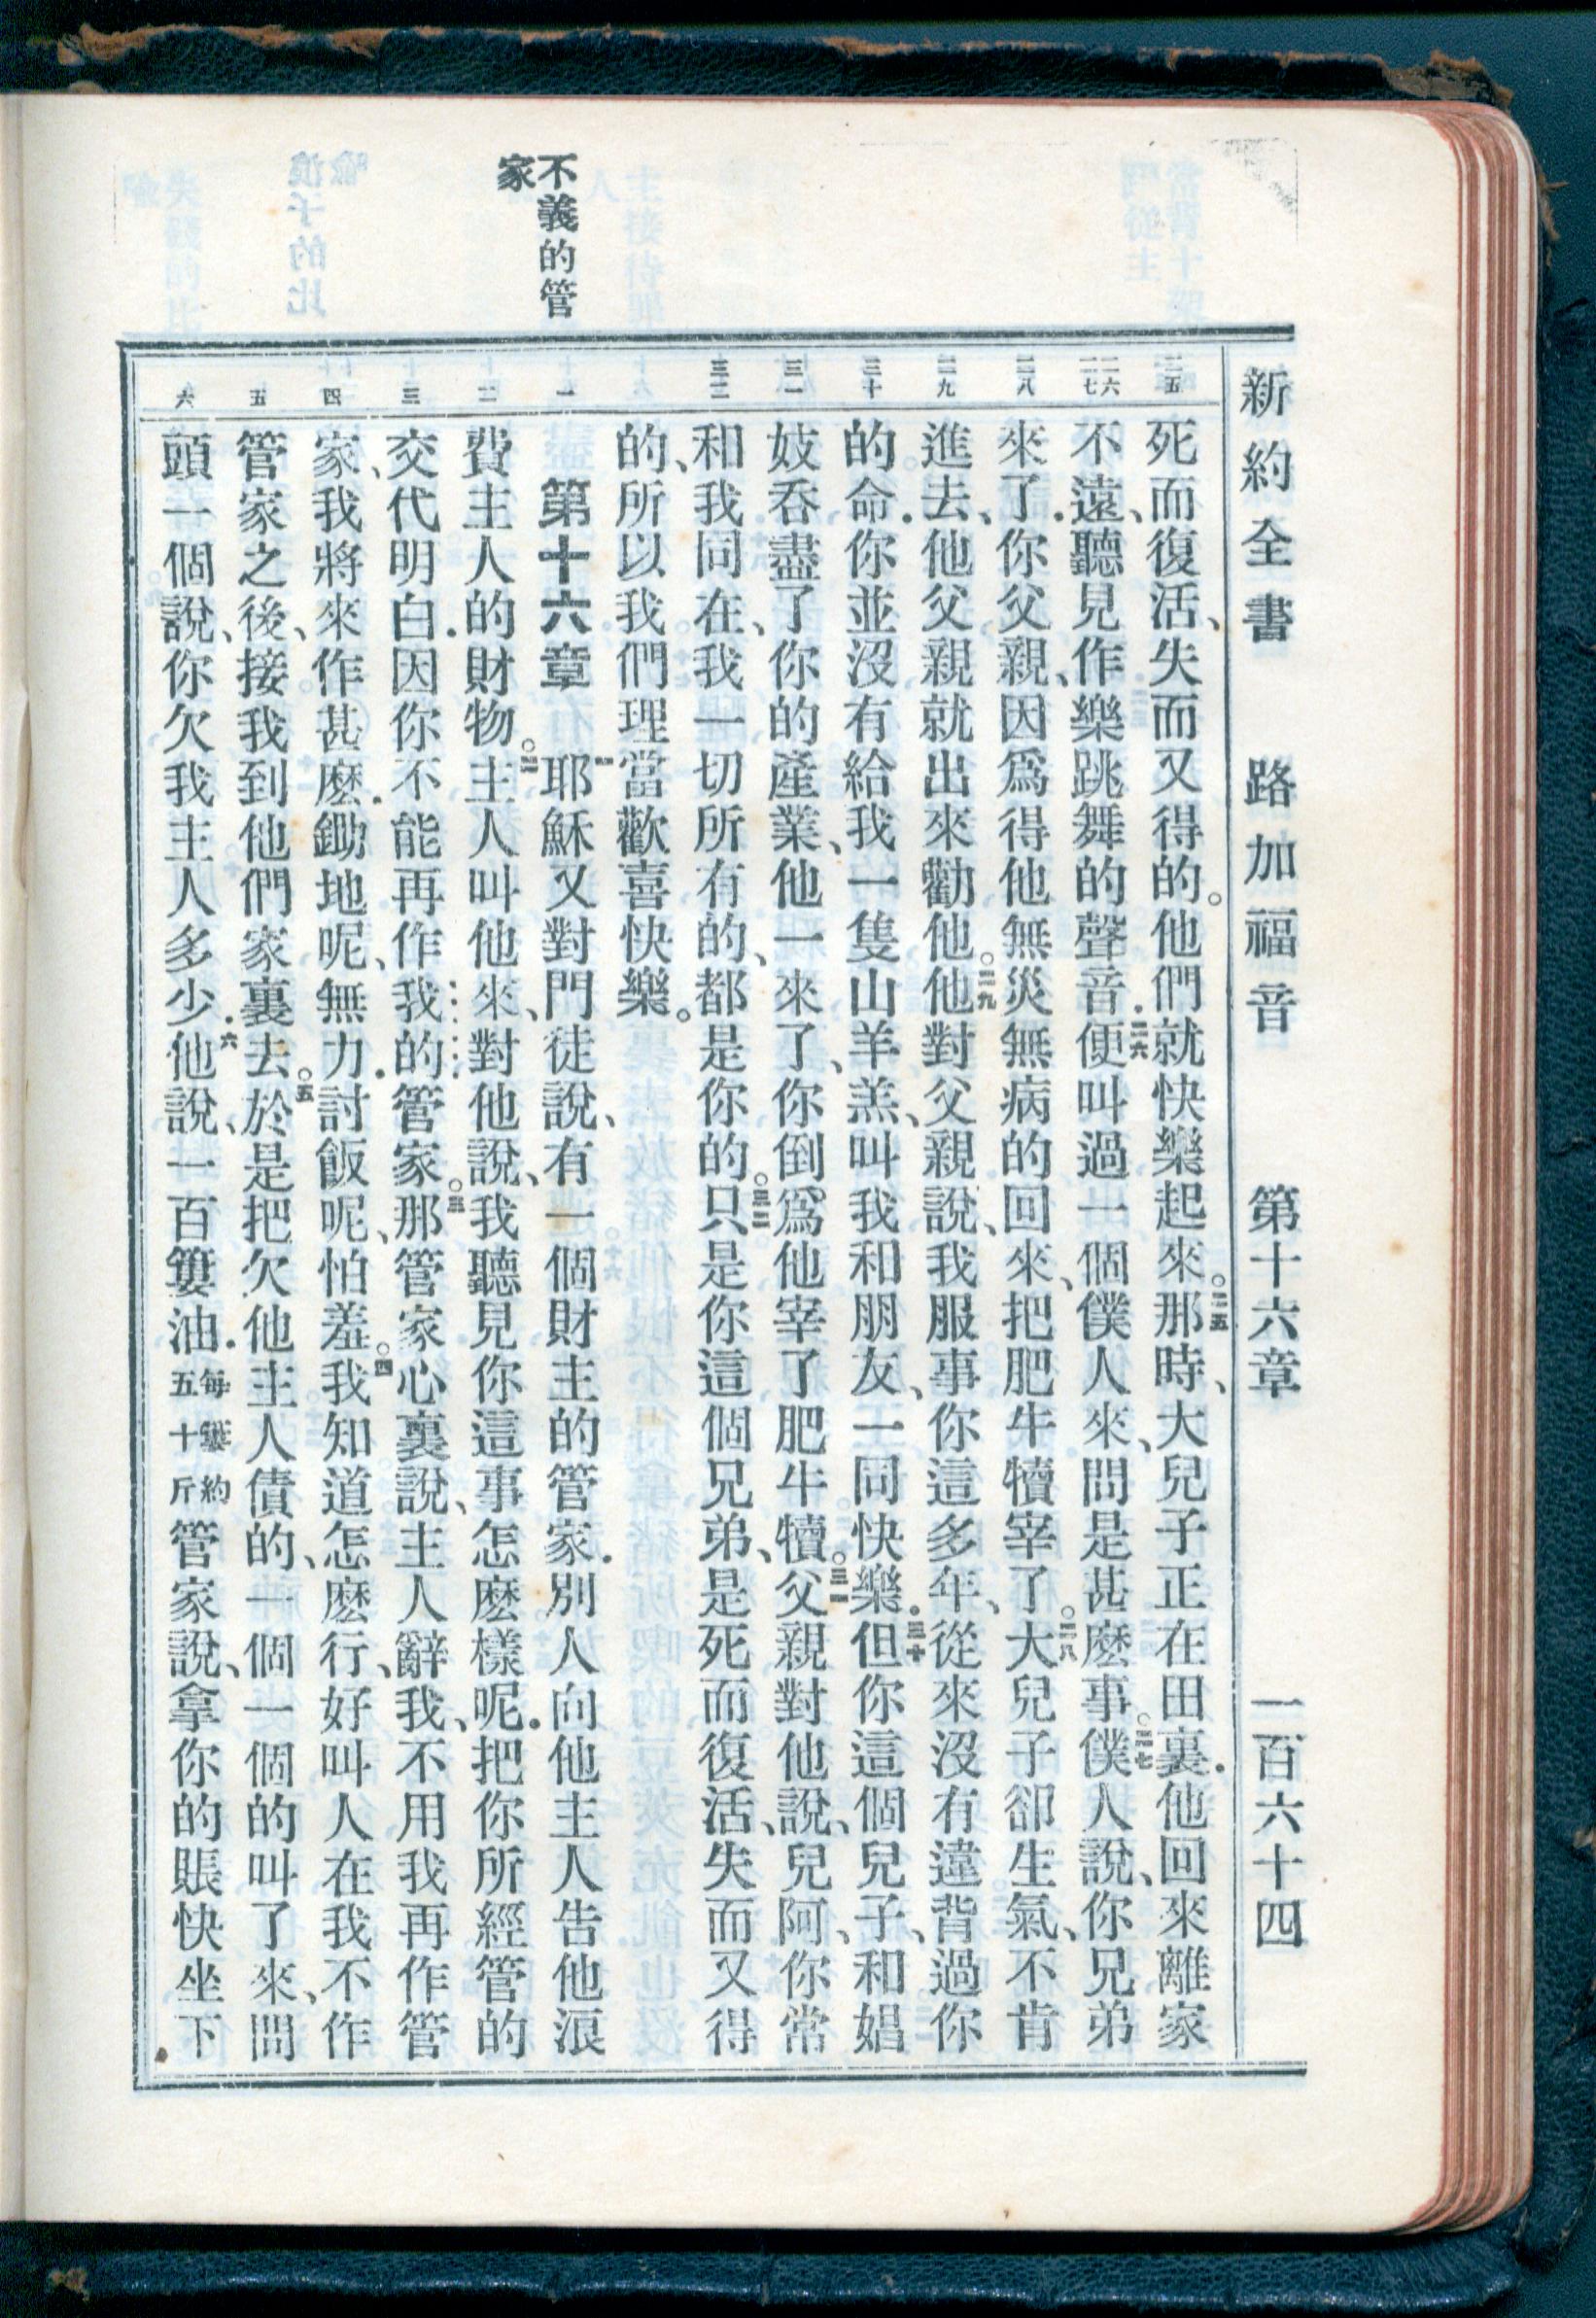 新約全書 路加福音 第十六章 一百六十四
不義的管
家
二五
二六
二七
二八
二九
三十
三一
三二
一
二
三
四
五
六
死而復活、失而又得的。他們就快樂起來。二五那時、大兒子正在田裏．他回來離家
不遠、聽見作樂跳舞的聲音．二六便叫過一個僕人來、問是甚麽事。二七僕人說、你兄弟
來了．你父親、因爲得他無災無病的回來、把肥牛犢宰了。二八大兒子卻生氣、不肯
進去、他父親就出來勸他。二九他對父親說、我服事你這多年、從來沒有違背過你
的命．你並沒有給我一隻山羊羔、叫我和朋友、一同快樂．三十但你這個兒子、和娼
妓吞盡了你的產業、他一來了、你倒爲他宰了肥牛犢。三一父親對他說、兒阿、你常
和我同在、我一切所有的、都是你的。三二只是你這個兄弟、是死而復活、失而又得
的、所以我們理當歡喜快樂。
第十六章 一耶穌又對門徒說、有一個財主的管家．別人向他主人告他浪
費主人的財物。二主人叫他來、對他說、我聽見你這事怎麽樣呢．把你所經管的
交代明白．因你不能再作我的管家。三那管家心裏說、主人辭我、不用我再作管
家、我將來作甚麽．鋤地呢、無力．討飯呢、怕羞。四我知道怎麽行、好叫人在我不作
管家之後、接我到他們家裏去。五於是把欠他主人債的、一個一個的叫了來、問
頭一個說、你欠我主人多少．六他說、一百簍油．每簍約五十斤管家說、拿你的賬快坐下